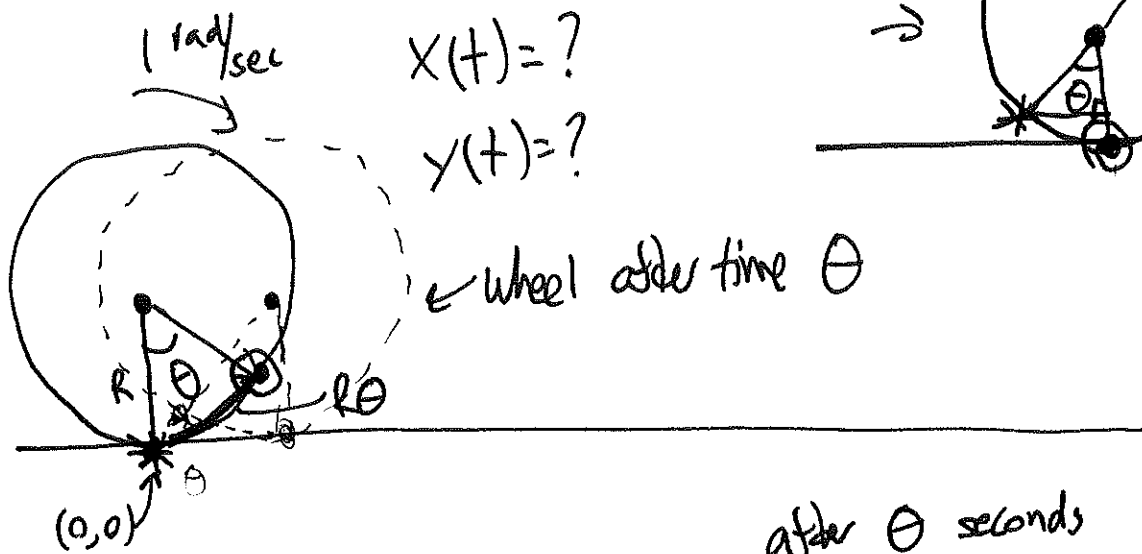 1 rad/sec
x(t)=?
y(t)=?
θ
wheel after time θ
R
θ
Rθ
θ
(0,0)
after θ seconds